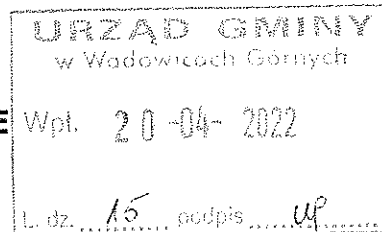 URZĄD GMINY
w Wadowicach Górnych
Wpł. 20 -04- 2022
L. dz. 15 podpis